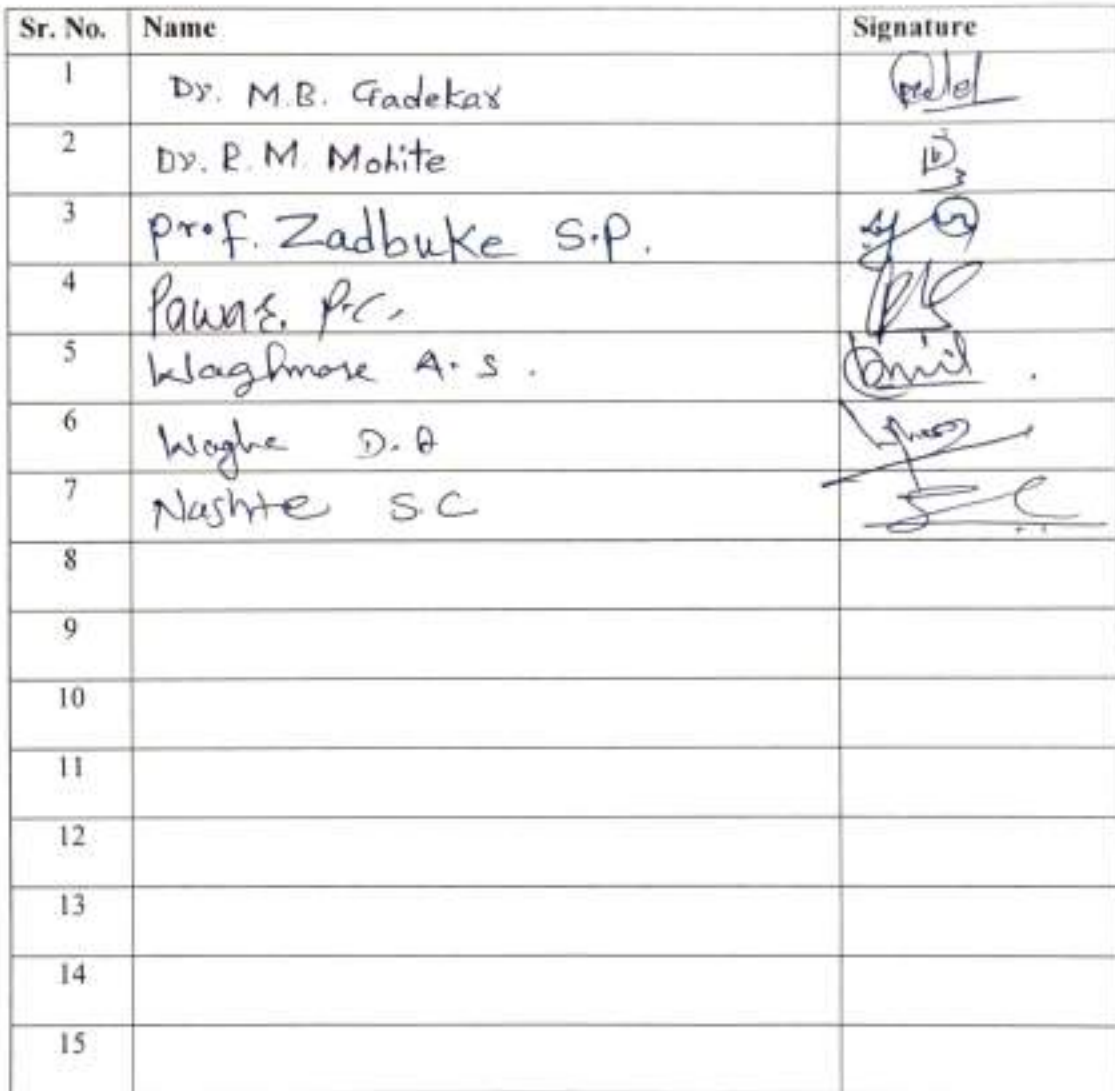 Sr. No. Name Signature
1 Dr. M.B. Gadekar
2 Dr. R. M. Mohite
3 Prof. Zadbuke S.P.
4 Pawar. P.C.
5 Waghmare A.S.
6 Waghe D.A
7 Nashte S.C
8
9
10
11
12
13
14
15